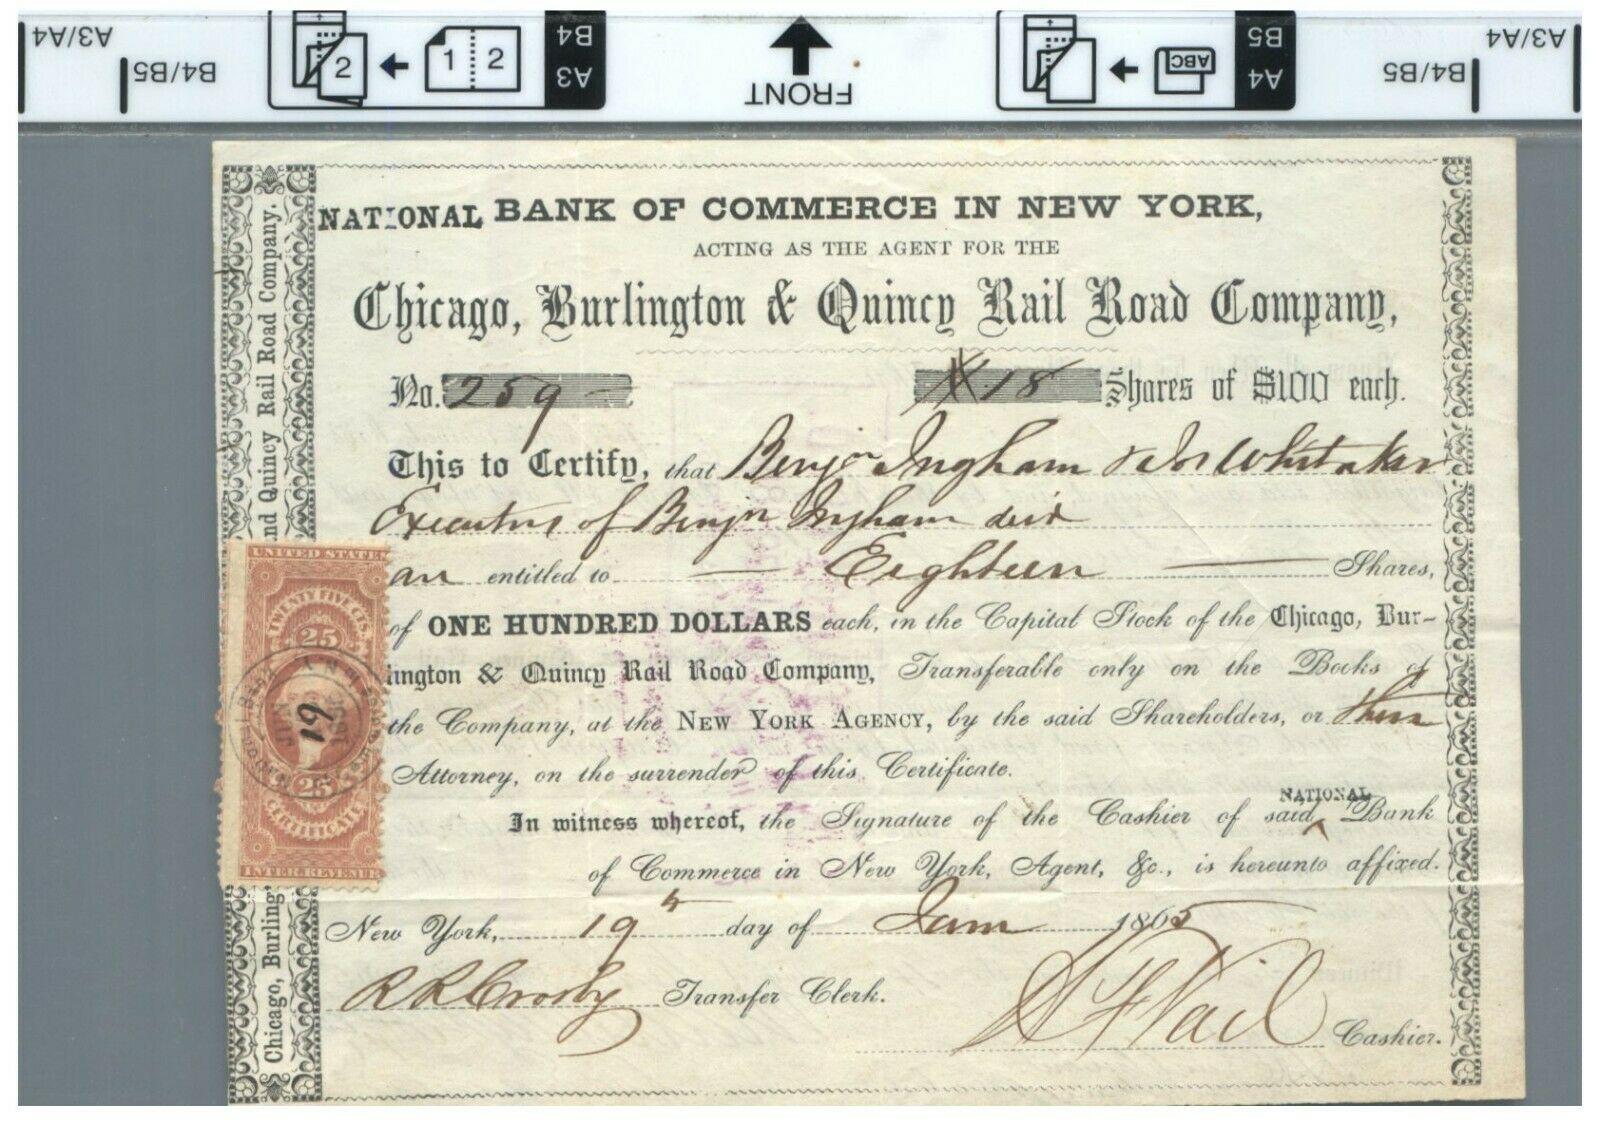 A3/A4
B4/B5
2
1 2
B4
A3
FRONT
ABC
B5
A4
B4/B5
A3/A4
NATIONAL BANK OF COMMERCE IN NEW YORK,
ACTING AS THE AGENT FOR THE
Chicago, Burlington & Quincy Rail Road Company,
No. 259 18 Shares of $100 each.
This to Certify, that Benjn Ingham & Whitaker
Executors of Benjn Ingham
are entitled to Eighteen Shares,
of ONE HUNDRED DOLLARS each, in the Capital Stock of the Chicago, Bur-
lington & Quincy Rail Road Company, Transferable only on the Books of
the Company, at the NEW YORK AGENCY, by the said Shareholders, or their
Attorney, on the surrender of this Certificate.
NATIONAL
In witness whereof, the Signature of the Cashier of said ^ Bank
of Commerce in New York, Agent, &c., is hereunto affixed.
New York, 19th day of 1865
R R Crosby Transfer Clerk.
H F Vail Cashier.
and Quincy Rail Road Company.
Chicago, Burling
UNITED STATES
TWENTY FIVE CTS.
25
19
25
CERTIFICATE
INTER. REVENUE